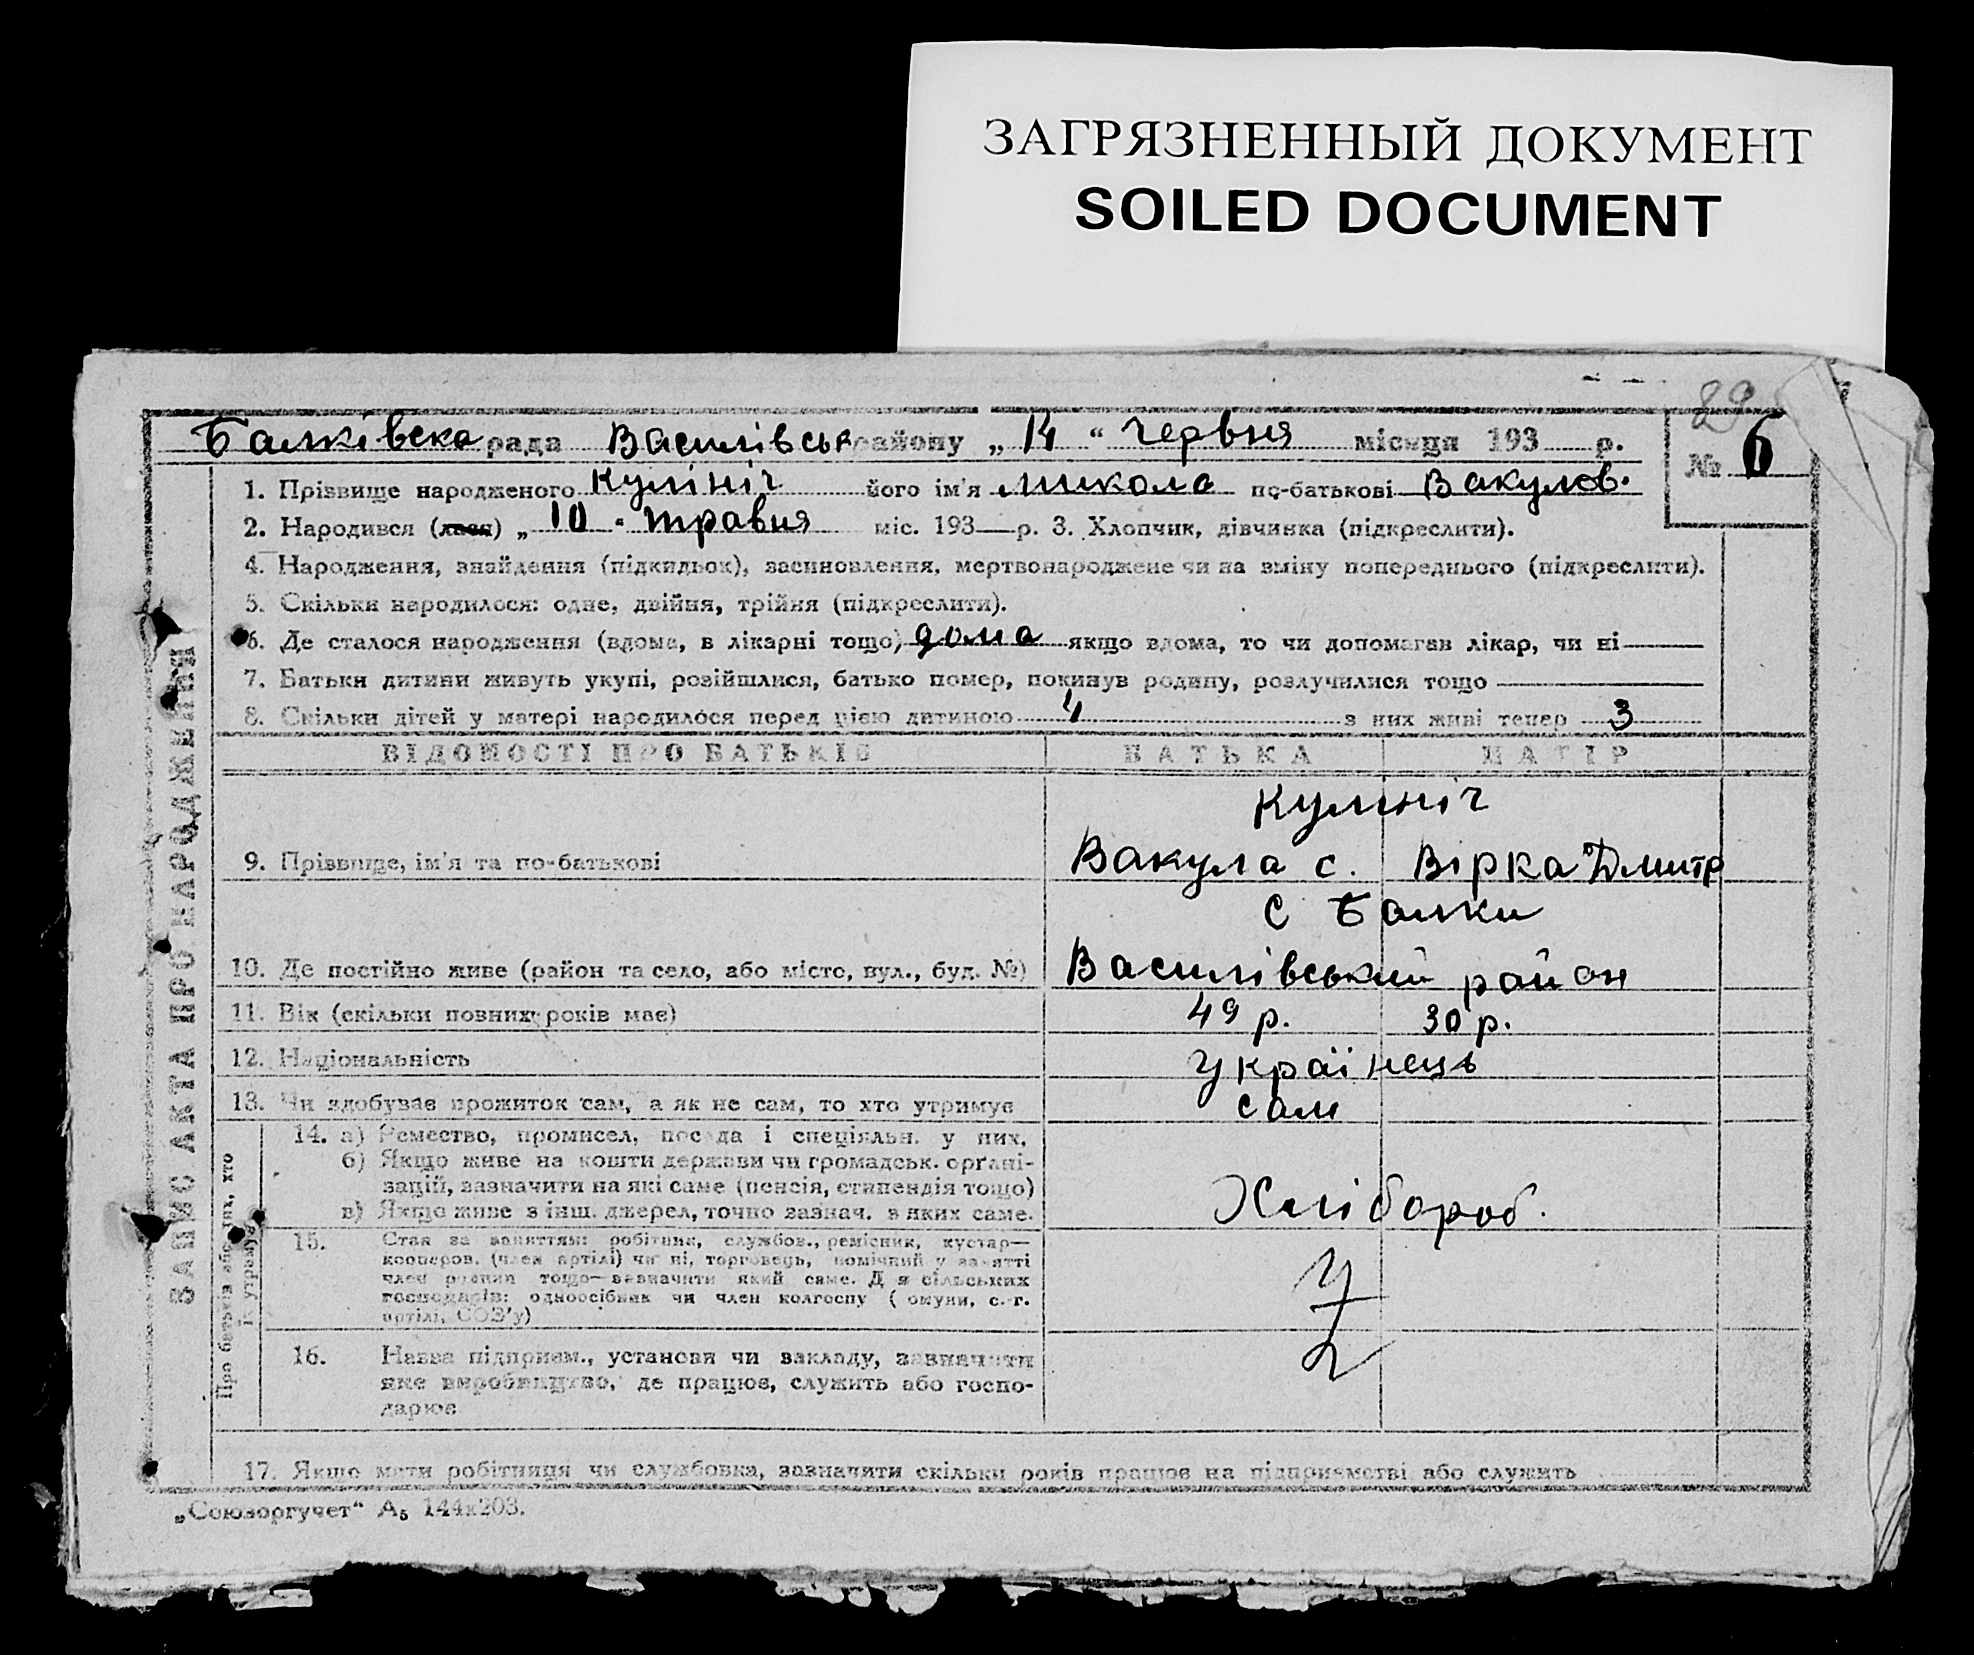 ЗАГРЯЗНЕННЫЙ ДОКУМЕНТ
SOILED DOCUMENT
29
Балківска рада Василівськ району „ 14 “ червня місяця 193 р. № 6
1. Прізвище народженого Кулініч його ім'я Микола по-батькові Вакулов.
2. Народився (лася) „ 10 “ травня міс. 193 — р. 3. Хлопчик, дівчинка (підкреслити).
4. Народження, знайдення (підкидьок), засиновлення, мертвонароджене чи на зміну попереднього (підкреслити).
5. Скільки народилося: одне, двійня, трійня (підкреслити).
6. Де сталося народження (вдома, в лікарні тощо) дома якщо вдома, то чи допомагав лікар, чи ні
7. Батьки дитини живуть укупі, розійшлися, батько помер, покинув родину, розлучилися тощо
8. Скільки дітей у матері народилося перед цією дитиною 4 з них живі тепер 3
ЗАПИС АКТА ПРО НАРОДЖЕННЯ
ВІДОМОСТІ ПРО БАТЬКІВ БАТЬКА МАТІР
Кулініч
9. Прізвище, ім'я та по-батькові Вакула С. Вірка Дмитр
С Балки
10. Де постійно живе (район та село, або місто, вул., буд. №) Василівський район
11. Вік (скільки повних років має) 49 р. 30 р.
12. Національність Українець
13. Чи здобуває прожиток сам, а як не сам, то хто утримує сам
Про батьків або тих, хто
їх утримує
14. а) Ремество, промисел, посада і спеціяльн. у них.
б) Якщо живе на кошти держави чи громадськ. органі-
зацій, зазначити на які саме (пенсія, стипендія тощо)
в) Якщо живе з інш. джерел, точно зазнач. з яких саме.
Хлібороб.
15. Стан за заняттям: робітник, службов., ремісник, кустар—
кооперов. (член артілі) чи ні, торговець, помічний у занятті
член родини тощо—зазначити який саме. Для сільських
господарів: одноосібник чи член колгоспу (комуни, с.-г.
артілі, СОЗ'у)
16. Назва підприєм., установи чи закладу, зазначити
яке виробництво, де працює, служить або госпо-
дарює
17. Якщо мати робітниця чи службовка, зазначити скільки років працює на підприємстві або служить
„Союзоргучет“ А5 144х203.